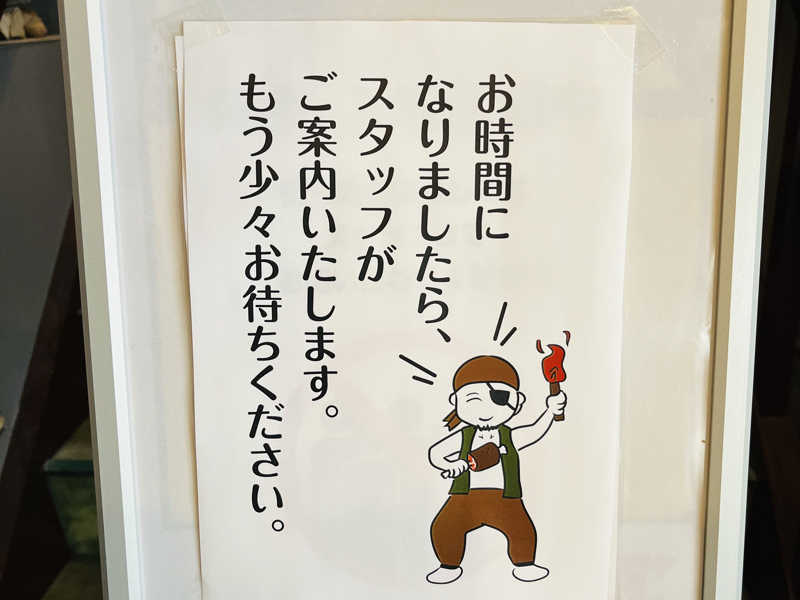 お時間に
なりましたら、
スタッフが
ご案内いたします。
もう少々お待ちください。